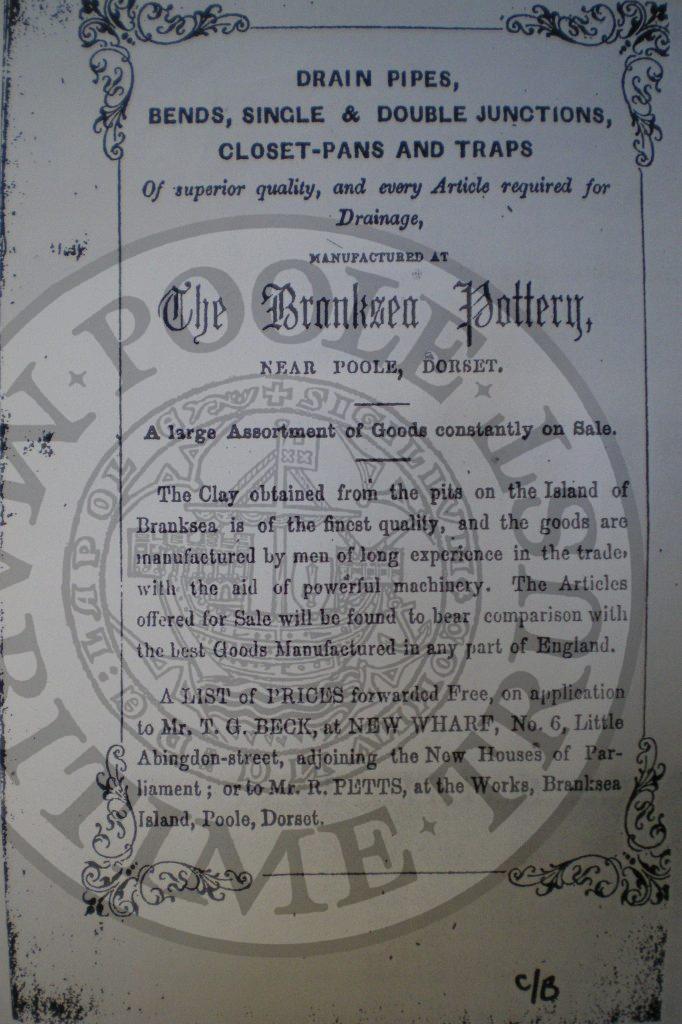 DRAIN PIPES,
BENDS, SINGLE & DOUBLE JUNCTIONS,
CLOSET-PANS AND TRAPS
Of superior quality, and every Article required for
Drainage,
MANUFACTURED AT
The Branksea Pottery,
NEAR POOLE, DORSET.
A large Assortment of Goods constantly on Sale.
The Clay obtained from the pits on the Island of
Branksea is of the finest quality, and the goods are
manufactured by men of long experience in the trade,
with the aid of powerful machinery. The Articles
offered for Sale will be found to bear comparison with
the best Goods Manufactured in any part of England.
A LIST of PRICES forwarded Free, on application
to Mr. T. G. BECK, at NEW WHARF, No. 6, Little
Abingdon-street, adjoining the New Houses of Par-
liament; or to Mr. R. PETTS, at the Works, Branksea
Island, Poole, Dorset.
C/B
POOLE
TIME TRUST